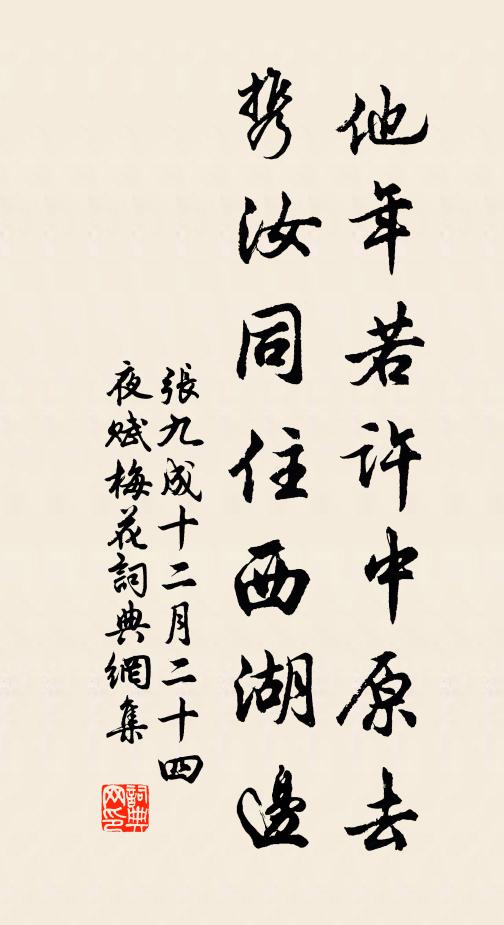 他年若許中原去
携汝同住西湖邊
張九成十二月二十四
夜賦梅花詞典網集
詞典
网印